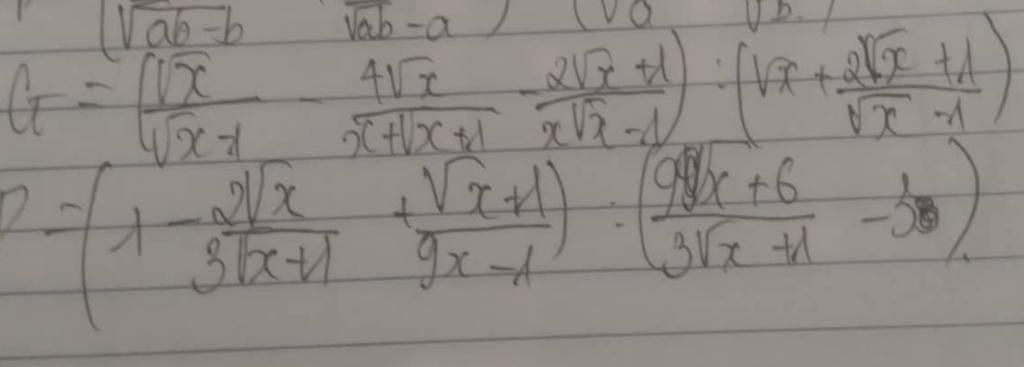 (√ab-b √ab-a) (√a √b.)
G = (√x/√x-1 - 4√x/x+√x+1 - 2√x+1/x√x-1) : (√x + 2√x+1/√x-1)
= (1 - 2√x/3√x+1 + √x+1/9x-1) : (9√x+6/3√x+1 - 3).